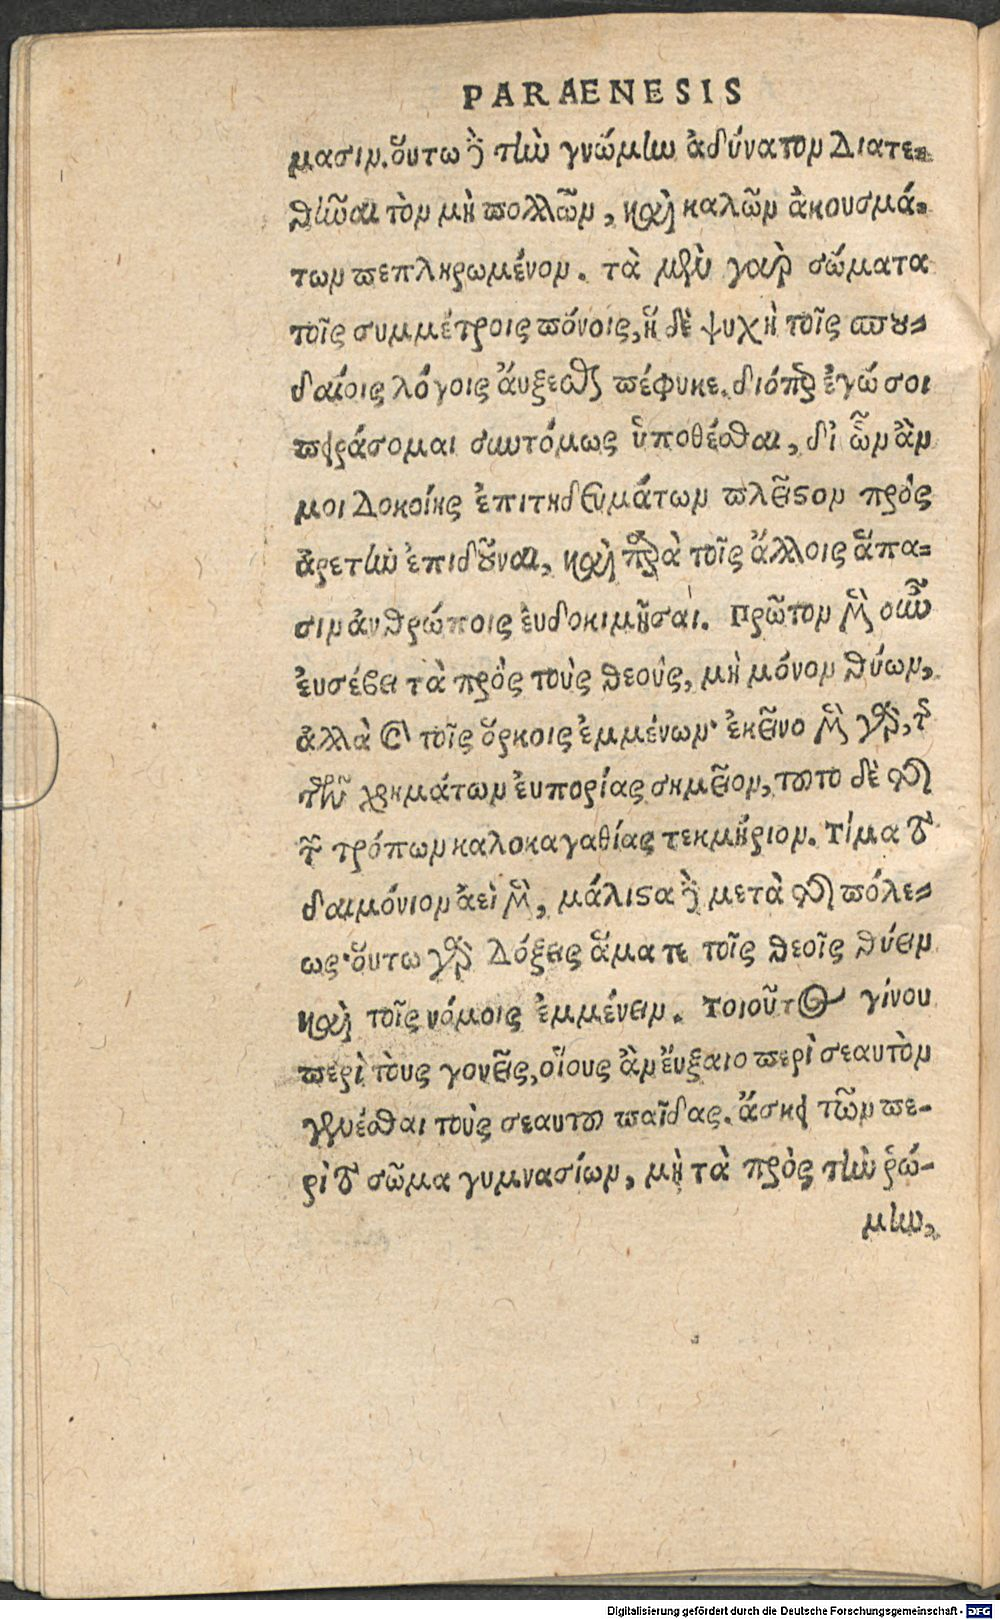 PARAENESIS
μασιν. ὅυτω ϗ̀ τὴν γνώμην ἀδύνατον διατε-
θῆναι τὸν μὴ πολλῶν, καὶ καλῶν ἀκουσμά-
των πεπληρωμένον. τὰ μὲν γὰρ σώματα
τοῖς συμμέτροις πόνοις, ἡ δὲ ψυχὴ τοῖς σπου-
δαίοις λόγοις ἄυξεσθαι πέφυκε. διόπερ ἐγώ σοι
πειράσομαι συντόμως ὑποθέσθαι, δι ὧν ἄν
μοι δοκοίης ἐπιτηδευμάτων πλεῖςον πρὸς
ἀρετὴν ἐπιδοῦναι, καὶ παρὰ τοῖς ἄλλοις ἅπα-
σιν ἀνθρώποις ἐυδοκιμῆσαι. Πρῶτον μὲν οὖν
ἐυσέβει τὰ πρὸς τοὺς θεοὺς, μὴ μόνον θύων,
ἀλλὰ καὶ τοῖς ὅρκοις ἐμμένων· ἐκεῖνο μὲν γὰρ, τῆς
τῶν χρημάτων ἐυπορίας σημεῖον, τοῦτο δὲ τῆς
τῶν τρόπων καλοκαγαθίας τεκμήριον. Τίμα τὸ
δαιμόνιον ἀεὶ μὲν, μάλιςα ϗ̀ μετὰ τῆς πόλε-
ως· ὅυτω γὰρ δόξεις ἅμα τε τοῖς θεοῖς θύειν
καὶ τοῖς νόμοις ἐμμένειν. Τοιοῦτος γίνου
περὶ τοὺς γονεῖς, οἵους ἂν ἔυξαιο περὶ σεαυτὸν
γενέσθαι τοὺς σεαυτοῦ παῖδας. ἄσκει τῶν πε-
ρὶ τὸ σῶμα γυμνασίων, μὴ τὰ πρὸς τὴν ῥώ-
μην,
Digitalisierung gefördert durch die Deutsche Forschungsgemeinschaft - DFG